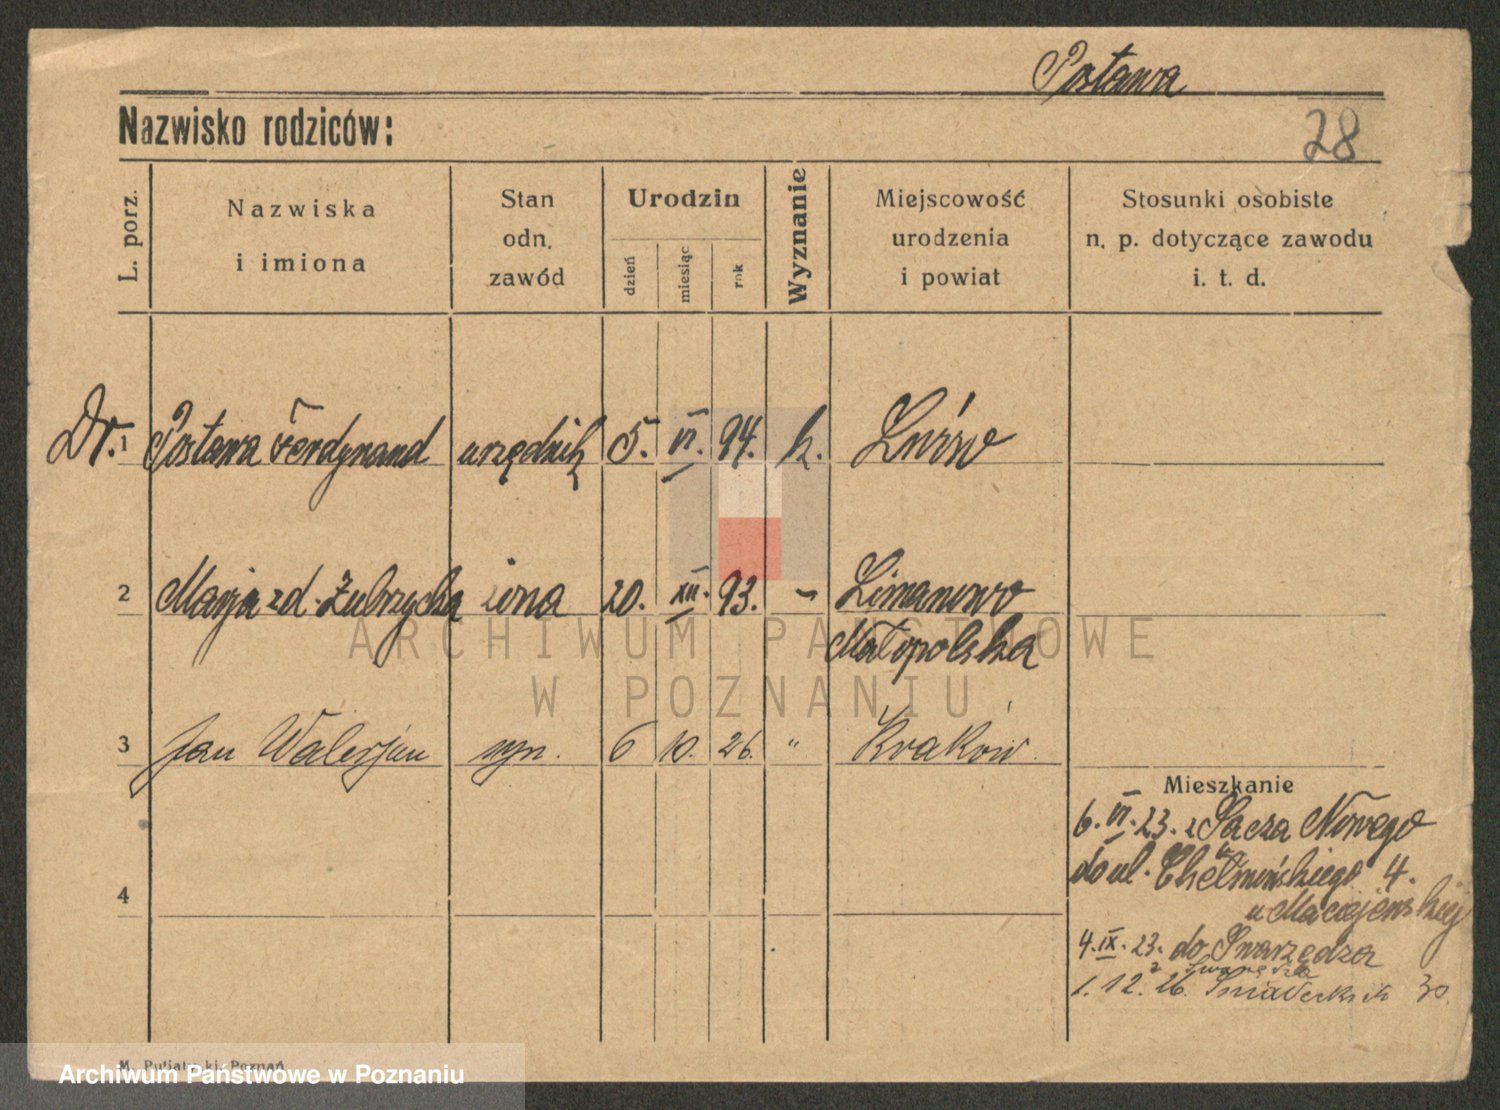 Postawa
Nazwisko rodziców:
28
L. porz.
Nazwiska
i imiona
Stan
odn.
zawód
Urodzin
dzień
miesiąc
rok
Wyznanie
Miejscowość
urodzenia
i powiat
Stosunki osobiste
n. p. dotyczące zawodu
i. t. d.
Dr. 1 Postawa Ferdynand urzędnik 5. VI. 94. k. Lwów
2 Marja zd. Zubrzycka żona 20. XII. 93. " Limanowo
Małopolska
3 Jan Walerjan syn. 6 10. 26. " Kraków.
4
Mieszkanie
6. VI. 23. z Sącza Nowego
do ul. Chełmońskiego 4.
u Maciejewskiej
4. IX. 23. do Swarzędza
z Swarzędza
1. 12. 26. Śniadeckich 30
M. Putiatycki, Poznań
ARCHIWUM PAŃSTWOWE
W POZNANIU
Archiwum Państwowe w Poznaniu